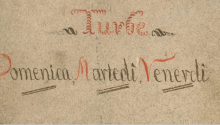 Turbe
Domenica, Martedì, Venerdì